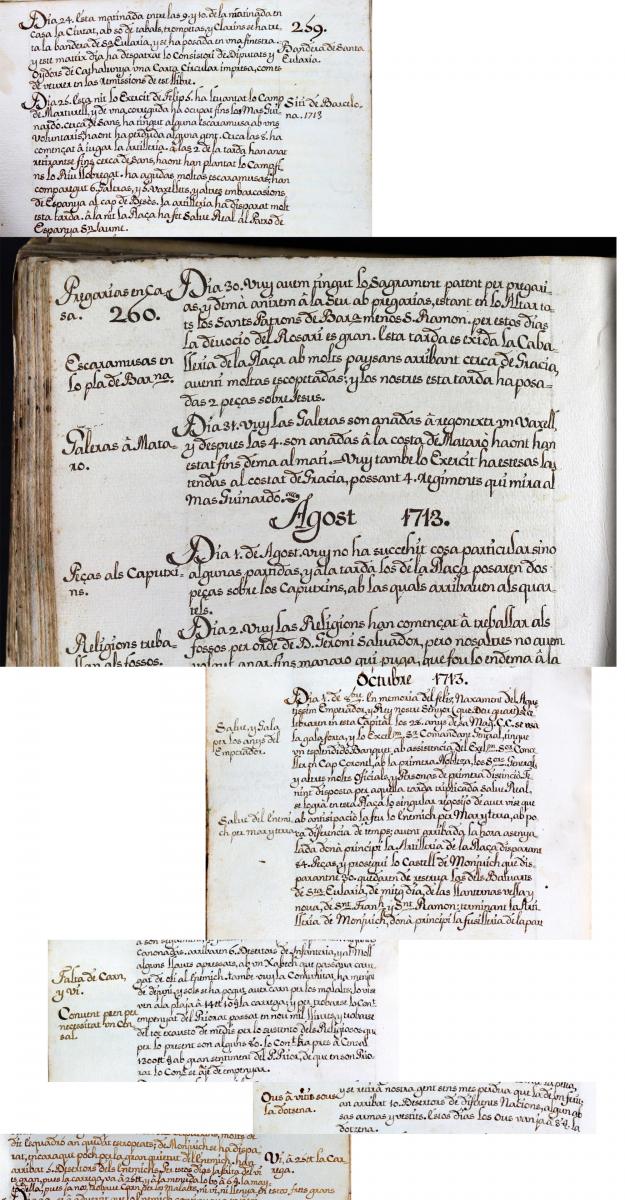 Dia 24. Esta matinada entre las 9. y 10. de la matinada en
Casa la Ciutat, ab so de tabals, trompetas, y Clarins se ha tre-
ta la bandera de Sta Eularia, y se ha posada en vna finestra.
y est mateix dia ha despatxat lo Consistori de Diputats y
Oydors de Cathalunya vna Carta Circular impresa, com es
de veurer en las remissions de est llibre.
259.
Bandera de Santa
Eularia.
Dia 25. Esta nit lo Exercit de Felip 5. ha levantat lo Camp
de Martorell, y de vna correguda ha ocupat fins los Mas Gui-
nardo. cerca de Sans, ha tingut alguna escaramusa ab vns
voluntaris, ahont ha perduda alguna gent. Cerca las 8. ha
començat à jugar la artilleria. à las 2 de la tarda han anat
retirantse fins cerca de Sans, haont han plantat lo Camp fi-
ns lo Riu Llobregat. ha agudas moltas escaramusas; han
comparegut 6. Galeras, y 3. Vaxellets, y altres embarcasions
de Espanya al cap de Besòs. la artilleria ha disparat molt
esta tarda. à la nit la Plaça ha fet Salve Real al Patró de
Espanya St Jaume.
Siti de Barcelo-
na. 1713
Pregarias en Ca-
sa. 260.
Dia 30. Vuy avem tingut lo Sagrament patent per pregari-
as, y demà anirem à la Seu ab pregarias, estant en lo Altar to-
ts los Sants Patrons de Barna menos S. Ramon. per estos dias
la devocio del Rosari es gran. Esta tarda es exida la Caba-
lleria de la Plaça ab molts paysans arribant cerca de Gracia,
avent i moltas escopetadas; y los nostres esta tarda ha posa-
das 2 peças sobre Jesus.
Escaramusas en
lo pla de Barna.
Dia 31. Vuy las Galeras son anadas à regonexer vn Vaxell,
y despues las 4. son anadas à la costa de Mataró haont han
estat fins demà al mati. Vuy tambe lo Exercit ha estesas las
tendas al costat de Gracia, possant 4. Regiments qui mira al
Mas Guinardo.
Galeras à Mata-
ro.
Agost 1713.
Dia 1. de Agost. vuy no ha succehit cosa particular sino
algunas partidas, y a la tarda los de la Plaça posaren dos
peças sobre los Caputxins, ab las quals arribaven als quar-
tels.
Peças als Caputxi-
ns.
Dia 2. Vuy las Religions han començat à treballar als
fossos per orde de D. Geroni Salvador, pero nosaltres no avem
volgut anar fins manaro qui puga, que fou lo endemà à la
Religions treba-
llan als fossos.
Octubre 1713.
Dia 1. de 8bre. En memoria del felis Naxament del Agus-
tissim Emperador, y Rey nostre Senyor (que Deu guarde) se ce-
lebraren en esta Capital los 28. anys de sa Mag. C.C. se vsà
la gala forta, y lo Excelm Sr Comandant General, tingué
vn esplendido Banquet, ab assistencia del Exlm Sor Conce-
ller en Cap Coronel, ab la primera Noblesa, los Sors Generals
y altres molts Oficials, y Personas de primera distincio. Te-
nint disposta per aquella tarda triplicada Salve Real.
se logrà en esta Plaça lo singular regosijo de aver vist que
ab anticipació la feu lo Enemich per Mar y terra, ab po-
ca diferencia de temps; avent arribada la hora asenya-
lada donà principi la Artilleria de la Plaça disparant
84. Peças, y prosegui lo Castell de Monjuich que dis-
parantne 30. quedaren de reserva las dels Baluarts
de Sta Eularia, de mitg dia, de las Llanternas vella y
nova, de Snt Franh y Snt Ramon; terminant la Arti-
lleria de Monjuich, donà principi la fusilleria de la part
Salve, y Gala
per los anys del
Emperador.
Salve del Enemi-
ch per mar y terra.
canonadas. arribaren 6. Desertors de Infanteria, y al Moll
alguns llauts apresats, ab vn Xabech que passava carre-
gat de oli al Enemich. tambe vuy la Comunitat, ha menjat
de dejuni, y sols se ha pogut aver carn per los malalts; lo vi se
ven à la plaja à 14 et 15 # la carrega; y per trobarse lo Cont
empenyat del Priorat passat en nou mil lliuras, y trobarse
del tot exaust de medis per lo sustento dels Religiosos, que
per lo present son alguns 80. lo Cont ha pres à Censal
1300 # ab gran sentiment del P. Prior, de que en son Prio-
rat lo Cont se aje de empenyar.
Falta de Carn,
y vi.
Convent pren per
necessitat vn Cen-
sal.
y se retirà nostra gent sens mes perdua que la de vn ferit;
an arribat 10. Desertors de diferents Nacions, alguns ab
sas armas y vestits. Estos dias los Ous van ja à 8 # la
dotzena.
Ous à vuit sous
la dotzena.
dit Esquadro an quedat estropeats; de Monjuich se ha dispa-
rat, encara que poch per la gran quietut del Enemich. han
arribat 5. Desertors dels Enemichs. Per estos dias la falta del vi
es gran, pues la carrega va à 25 #, y a la menuda
Vi, à 25 # la Car-
rega.